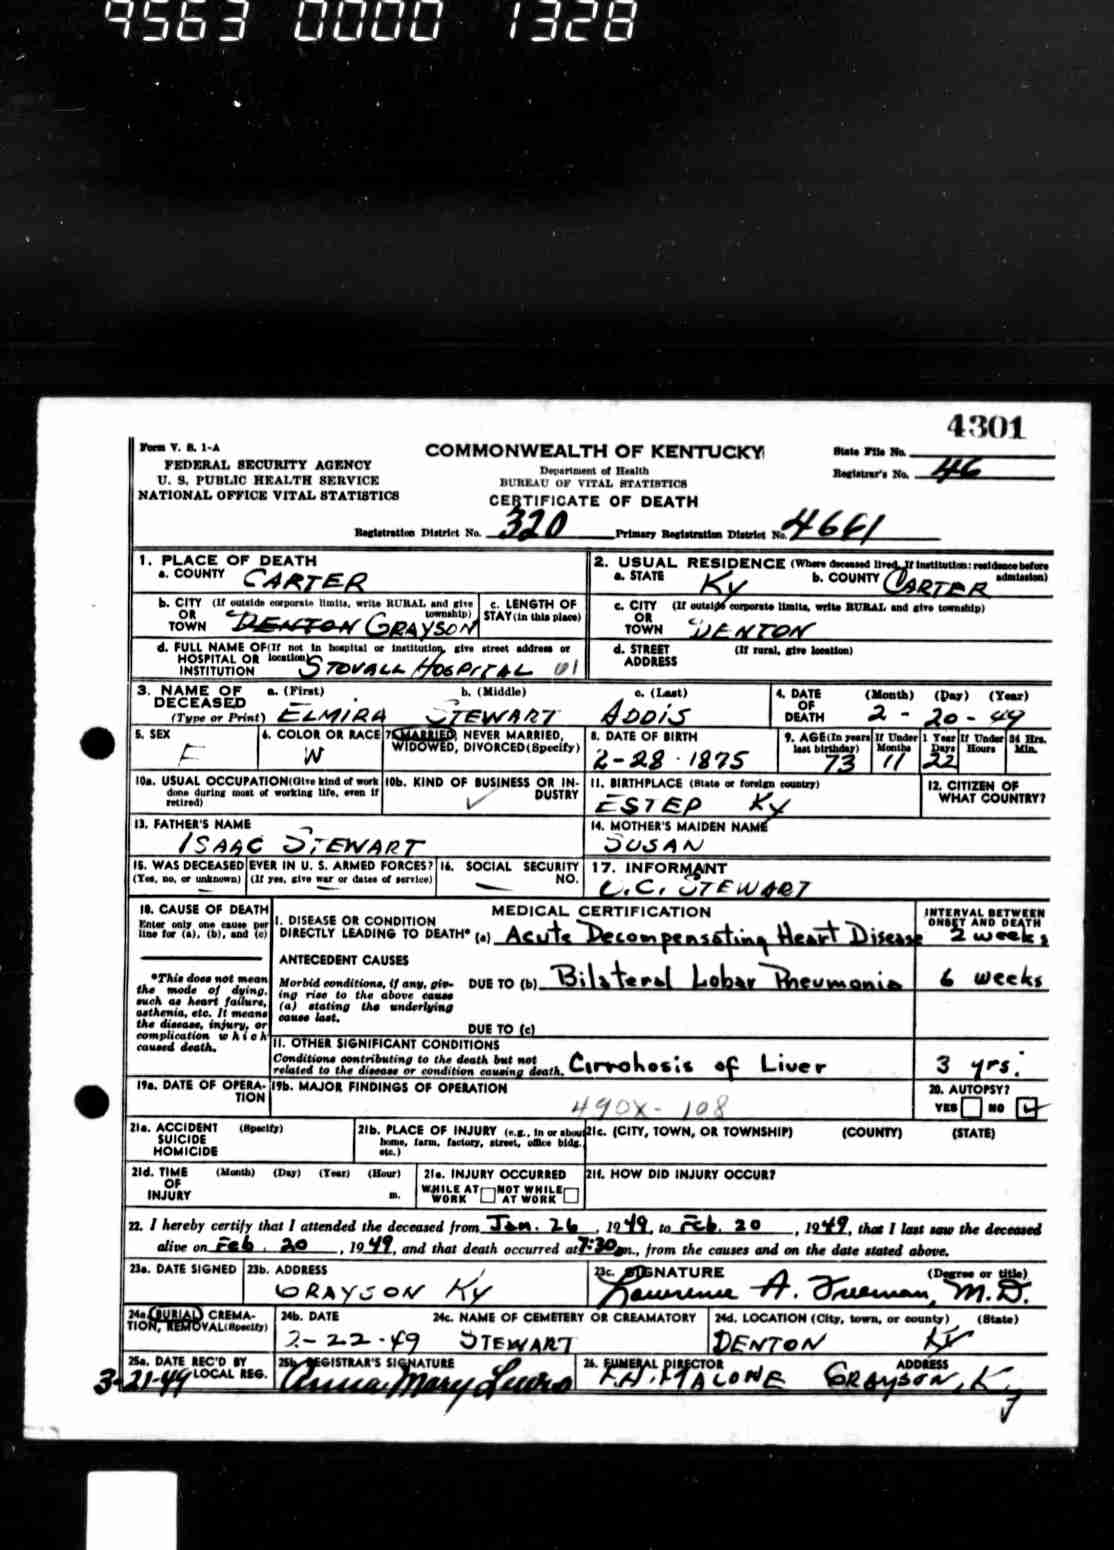 9563 0000 1328
4301
Form V. S. 1-A
FEDERAL SECURITY AGENCY
U. S. PUBLIC HEALTH SERVICE
NATIONAL OFFICE VITAL STATISTICS
COMMONWEALTH OF KENTUCKY
Department of Health
BUREAU OF VITAL STATISTICS
CERTIFICATE OF DEATH
State File No.
Registrar's No. 46
Registration District No. 320 Primary Registration District No. 4661
1. PLACE OF DEATH
a. COUNTY CARTER
2. USUAL RESIDENCE (Where deceased lived. If institution: residence before admission)
a. STATE Ky b. COUNTY CARTER
b. CITY (If outside corporate limits, write RURAL and give township)
OR
TOWN DENTON GRAYSON
c. LENGTH OF
STAY (in this place)
c. CITY (If outside corporate limits, write RURAL and give township)
OR
TOWN DENTON
d. FULL NAME OF (If not in hospital or institution, give street address or location)
HOSPITAL OR
INSTITUTION STOVALL HOSPITAL 01
d. STREET (If rural, give location)
ADDRESS
3. NAME OF DECEASED a. (First) b. (Middle) c. (Last)
(Type or Print) ELMIRA STEWART ADDIS
4. DATE OF DEATH (Month) (Day) (Year)
2 - 20 - 49
5. SEX
F
6. COLOR OR RACE
W
7. MARRIED, NEVER MARRIED,
WIDOWED, DIVORCED (Specify)
8. DATE OF BIRTH
2-28-1875
9. AGE (In years last birthday) If Under 1 Year Months Days If Under 24 Hrs. Hours Min.
73 11 22
10a. USUAL OCCUPATION (Give kind of work
done during most of working life, even if
retired)
10b. KIND OF BUSINESS OR INDUSTRY
11. BIRTHPLACE (State or foreign country)
ESTEP Ky
12. CITIZEN OF
WHAT COUNTRY?
13. FATHER'S NAME
ISAAC STEWART
14. MOTHER'S MAIDEN NAME
SUSAN
15. WAS DECEASED EVER IN U. S. ARMED FORCES?
(Yes, no, or unknown) (If yes, give war or dates of service)
16. SOCIAL SECURITY
NO.
17. INFORMANT
C. STEWART
18. CAUSE OF DEATH
Enter only one cause per
line for (a), (b), and (c)
*This does not mean
the mode of dying,
such as heart failure,
asthenia, etc. It means
the disease, injury, or
complication which
caused death.
MEDICAL CERTIFICATION
INTERVAL BETWEEN
ONSET AND DEATH
I. DISEASE OR CONDITION
DIRECTLY LEADING TO DEATH* (a) Acute Decompensating Heart Disease 2 weeks
ANTECEDENT CAUSES
Morbid conditions, if any, giving rise to the above cause
(a) stating the underlying
cause last.
DUE TO (b) Bilateral Lobar Pneumonia 6 weeks
DUE TO (c)
II. OTHER SIGNIFICANT CONDITIONS
Conditions contributing to the death but not
related to the disease or condition causing death. Cirrohosis of Liver 3 yrs.
19a. DATE OF OPERATION
19b. MAJOR FINDINGS OF OPERATION
490X - 108
20. AUTOPSY?
YES NO
21a. ACCIDENT (Specify)
SUICIDE
HOMICIDE
21b. PLACE OF INJURY (e.g., in or about
home, farm, factory, street, office bldg.,
etc.)
21c. (CITY, TOWN, OR TOWNSHIP) (COUNTY) (STATE)
21d. TIME (Month) (Day) (Year) (Hour)
OF
INJURY m.
21e. INJURY OCCURRED
WHILE AT WORK NOT WHILE AT WORK
21f. HOW DID INJURY OCCUR?
22. I hereby certify that I attended the deceased from Jan. 26, 1949, to Feb. 20, 1949, that I last saw the deceased
alive on Feb. 20, 1949, and that death occurred at 7:30 m., from the causes and on the date stated above.
23a. DATE SIGNED
23b. ADDRESS
GRAYSON Ky
23c. SIGNATURE (Degree or title)
Lawrence A. Freeman, M.D.
24a. BURIAL, CREMATION, REMOVAL (Specify)
24b. DATE
2-22-49
24c. NAME OF CEMETERY OR CREAMATORY
STEWART
24d. LOCATION (City, town, or county) (State)
DENTON Ky
25a. DATE REC'D BY
LOCAL REG.
3-21-49
25b. REGISTRAR'S SIGNATURE
Anna Mary Lewis
26. FUNERAL DIRECTOR ADDRESS
MALONE GRAYSON, Ky